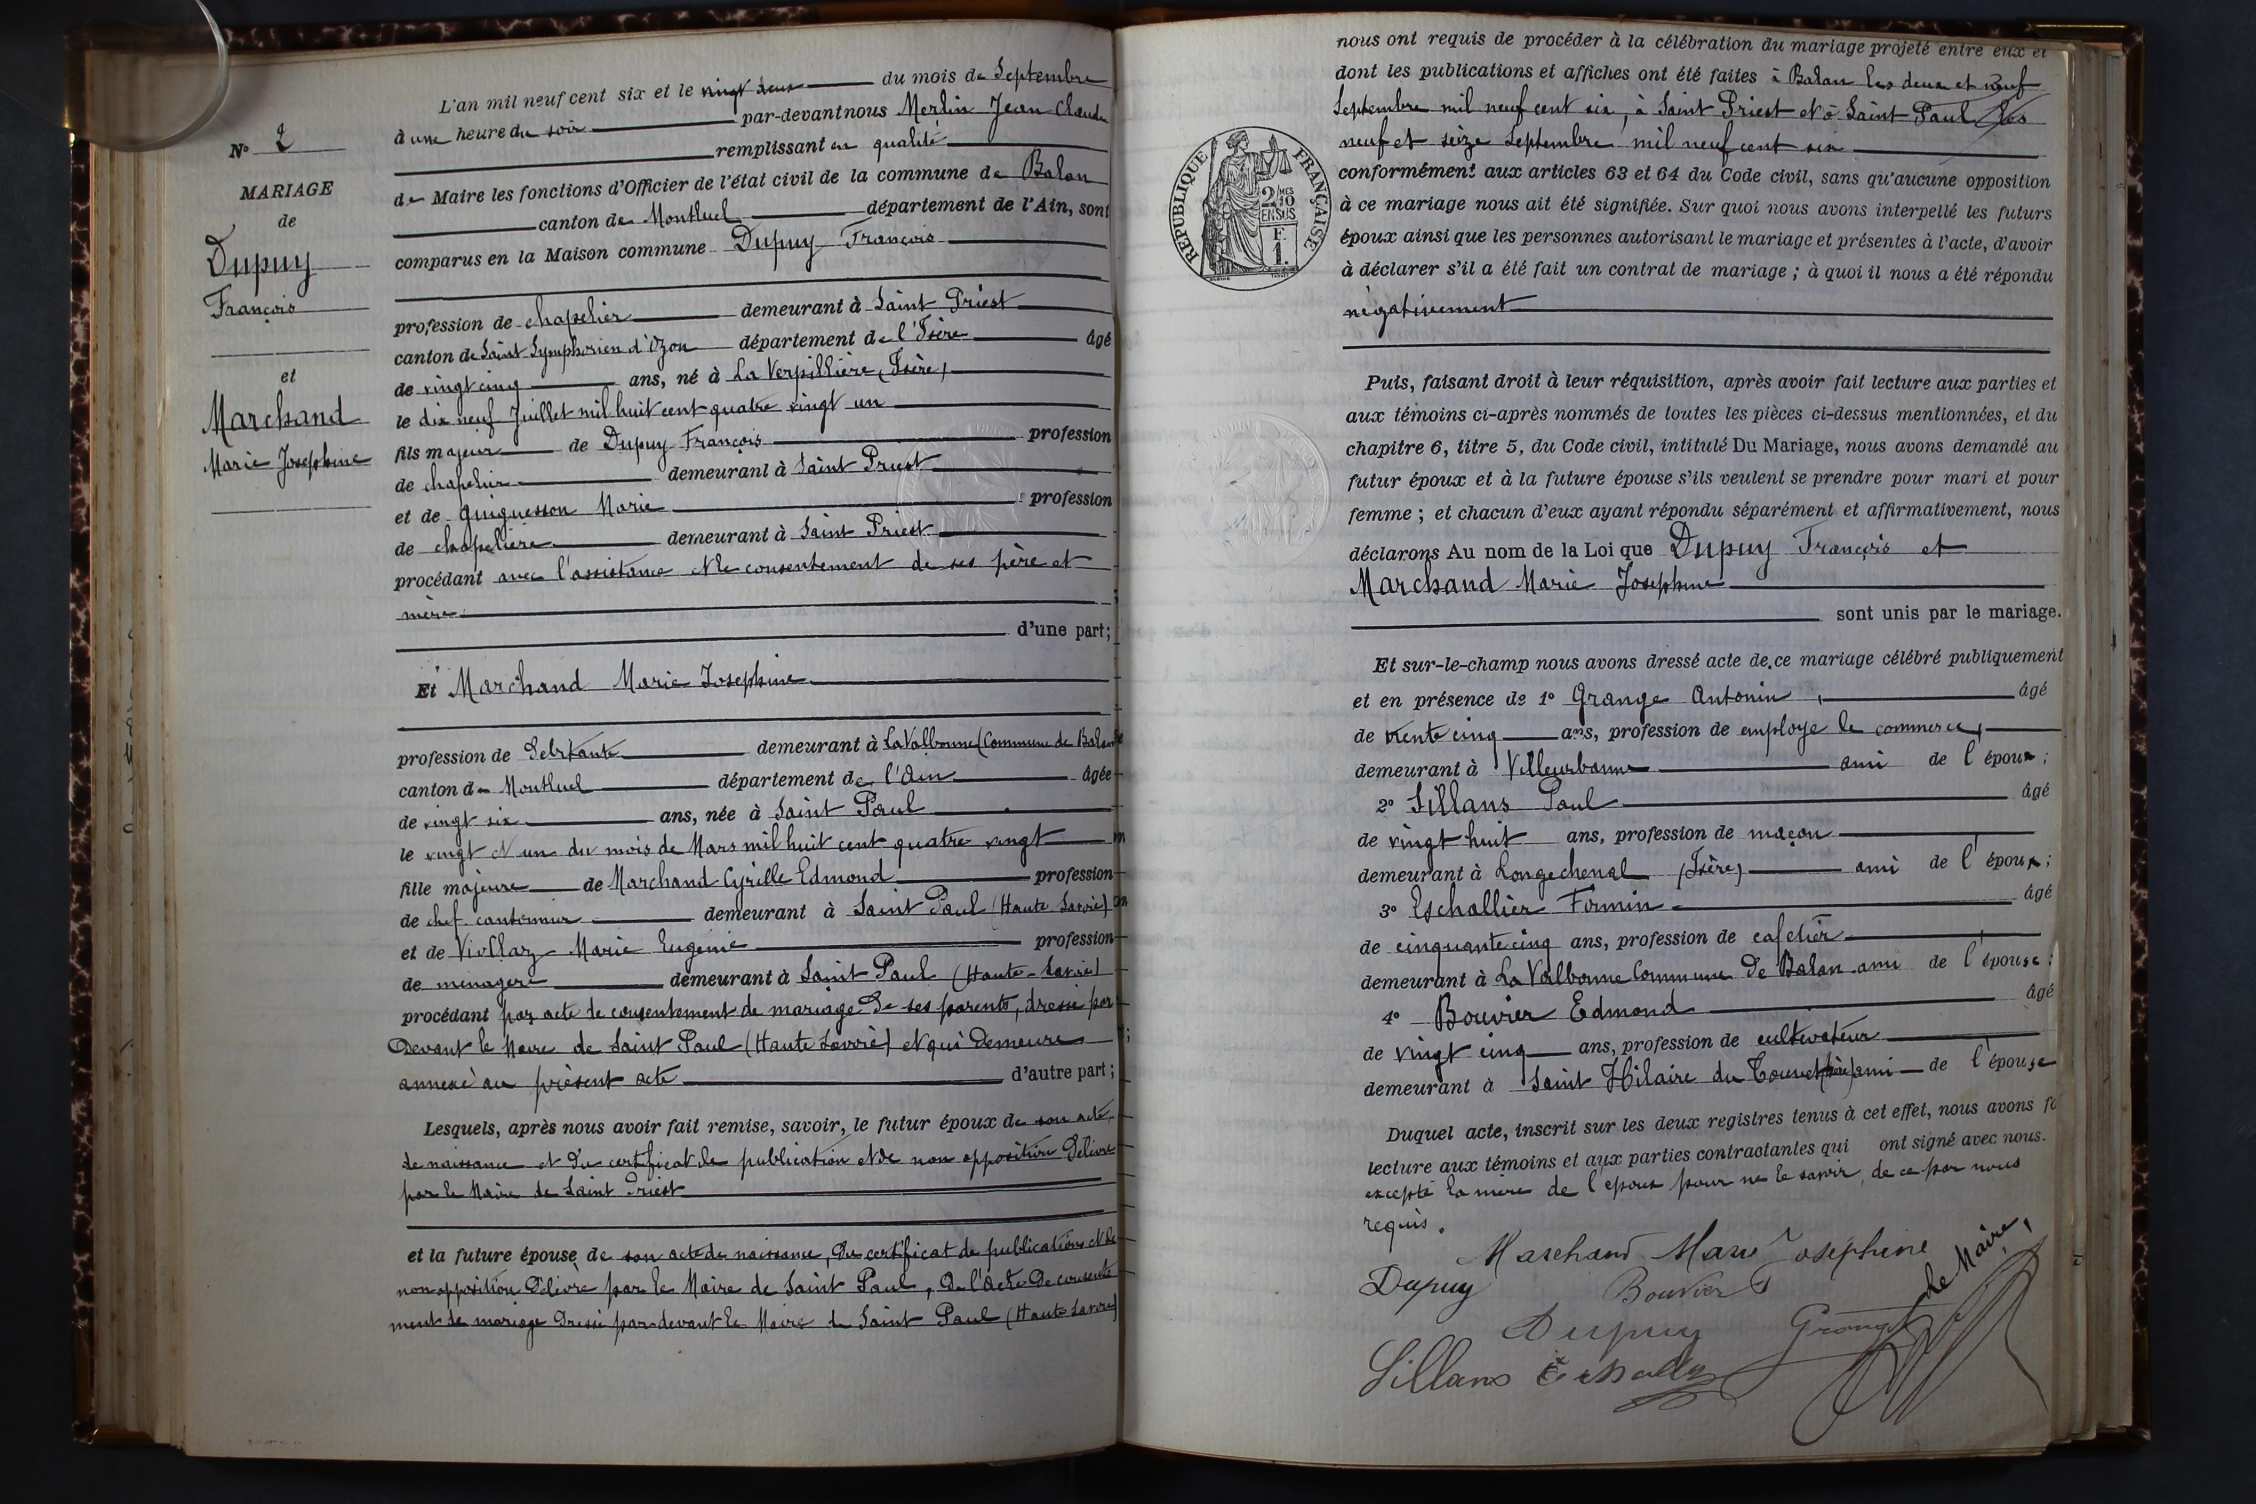 L'an mil neuf cent six et le vingt deux du mois de Septembre
à une heure du soir par-devant nous Merlin Jean Claude
remplissant en qualité
de Maire les fonctions d'Officier de l'état civil de la commune de Balan
canton de Montluel département de l'Ain, sont
comparus en la Maison commune Dupuy François
profession de chapelier demeurant à Saint Priest
canton de Saint Symphorien d'Ozon département de l'Isère âgé
de vingt cinq ans, né à La Verpillière (Isère)
le dix neuf Juillet mil huit cent quatre vingt un
fils majeur de Dupuy François profession
de chapelier demeurant à Saint Priest
et de Guiguesson Marie profession
de chapelière demeurant à Saint Priest
procédant avec l'assistance et le consentement de ses père et
mère
d'une part;
Et Marchand Marie Josephine
profession de Debitante demeurant à La Valbonne (Commune de Balan)
canton de Montluel département de l'Ain âgée
de vingt six ans, née à Saint Paul
le vingt et un du mois de Mars mil huit cent quatre vingt
fille majeure de Marchand Cyrille Edmond profession
de chef cantonnier demeurant à Saint Paul (Haute Savoie)
et de Viollaz Marie Eugénie profession
de ménagère demeurant à Saint Paul (Haute-Savoie)
procédant par acte de consentement de mariage de ses parents, dressé par
Devant le Maire de Saint Paul (Haute Savoie) et qui demeure
annexé au présent acte d'autre part;
Lesquels, après nous avoir fait remise, savoir, le futur époux de son acte
de naissance et du certificat de publication et de non opposition délivré
par le Maire de Saint Priest
et la future épouse de son acte de naissance, du certificat de publication et de
non opposition délivré par le Maire de Saint Paul, de l'acte de consente
ment de mariage dressé par-devant le Maire de Saint Paul (Haute Savoie)
N° 2
MARIAGE
de
Dupuy
François
et
Marchand
Marie Josephine
nous ont requis de procéder à la célébration du mariage projeté entre eux et
dont les publications et affiches ont été faites à Balan les deux et neuf
Septembre mil neuf cent six, à Saint Priest et à Saint Paul les
neuf et seize Septembre mil neuf cent six
conformément aux articles 63 et 64 du Code civil, sans qu'aucune opposition
à ce mariage nous ait été signifiée. Sur quoi nous avons interpellé les futurs
époux ainsi que les personnes autorisant le mariage et présentes à l'acte, d'avoir
à déclarer s'il a été fait un contrat de mariage; à quoi il nous a été répondu
négativement
RÉPUBLIQUE FRANÇAISE
2/10MES
EN SUS
1F.
Puis, faisant droit à leur réquisition, après avoir fait lecture aux parties et
aux témoins ci-après nommés de toutes les pièces ci-dessus mentionnées, et du
chapitre 6, titre 5, du Code civil, intitulé Du Mariage, nous avons demandé au
futur époux et à la future épouse s'ils veulent se prendre pour mari et pour
femme; et chacun d'eux ayant répondu séparément et affirmativement, nous
déclarons Au nom de la Loi que Dupuy François et
Marchand Marie Josephine
sont unis par le mariage.
Et sur-le-champ nous avons dressé acte de ce mariage célébré publiquement
et en présence de 1° Grange Antonin, âgé
de trente cinq ans, profession de employe de commerce,
demeurant à Villeurbanne ami de l'époux;
2° Sillans Paul âgé
de vingt huit ans, profession de maçon
demeurant à Longechenal (Isère) ami de l'époux;
3° Eschallier Firmin âgé
de cinquante cinq ans, profession de cafetier
demeurant à La Valbonne Commune de Balan ami de l'épouse;
4° Bouvier Edmond âgé
de vingt cinq ans, profession de cultivateur
demeurant à Saint Hilaire du Touvet (Isère) ami de l'épouse
Duquel acte, inscrit sur les deux registres tenus à cet effet, nous avons fa
lecture aux témoins et aux parties contractantes qui ont signé avec nous.
excepté la mère de l'époux pour ne le savoir, de ce par nous
requis.
Marchand Marie Josephine
Dupuy Bouvier
Le Maire,
Dupuy Grange
Sillans Eschallier